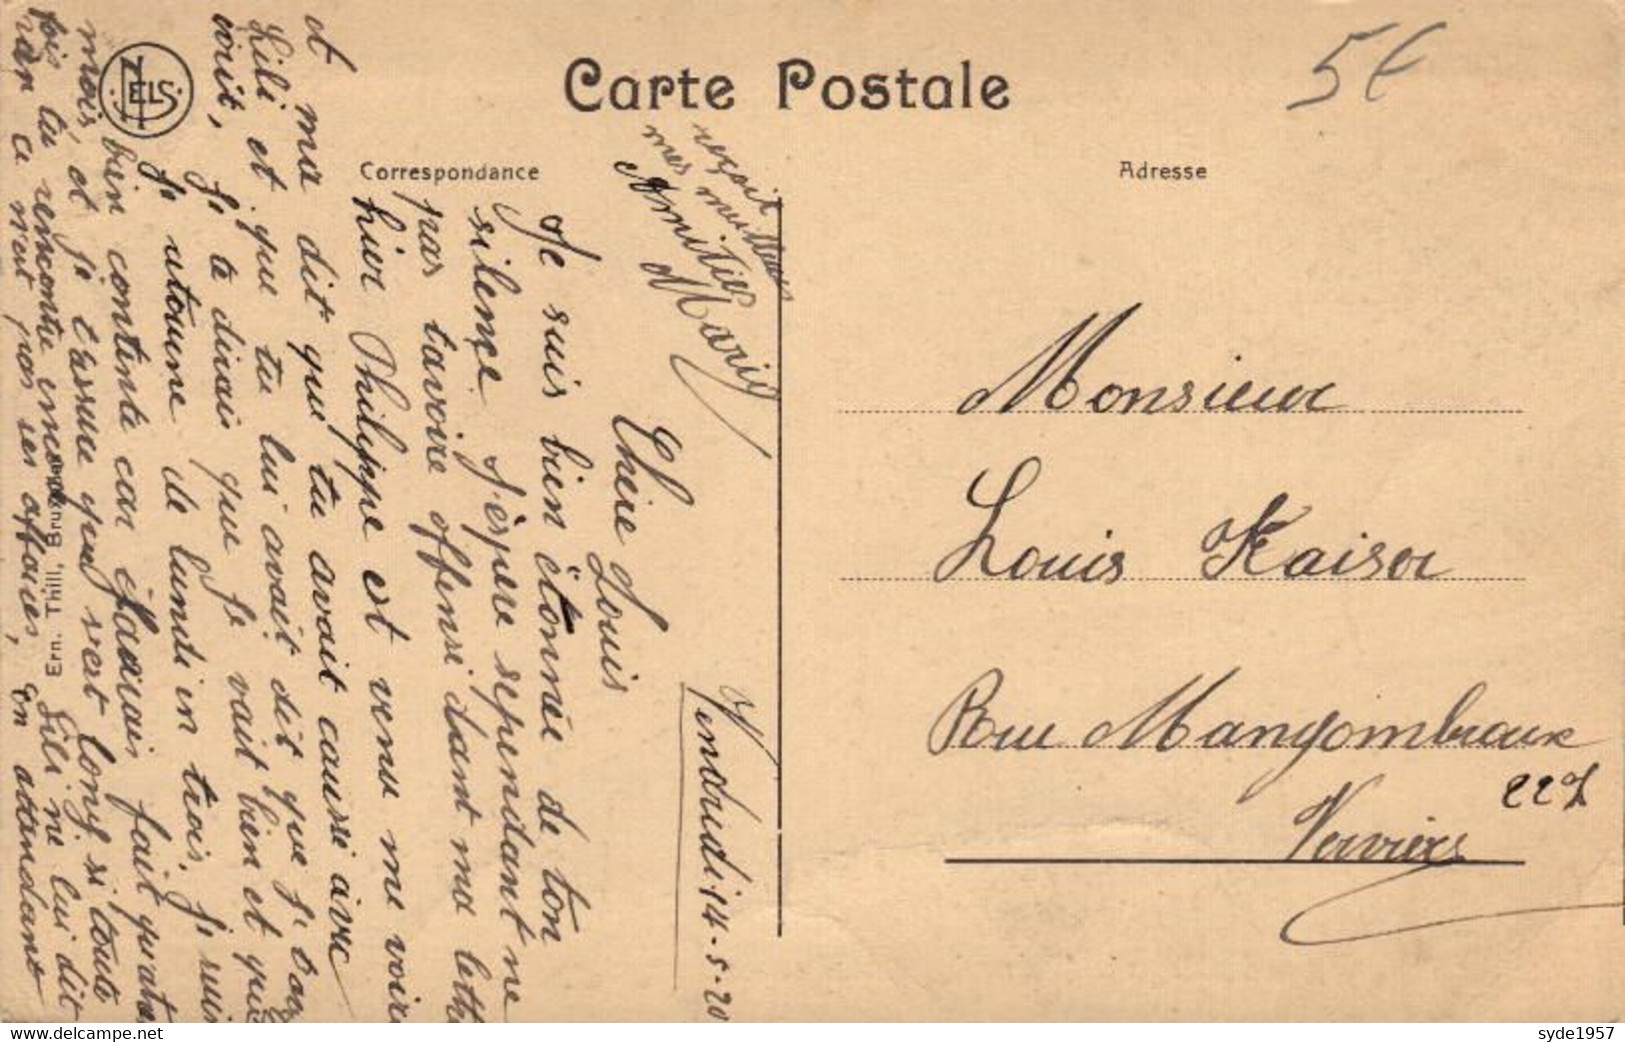 Carte Postale
5€
Correspondance
Adresse
Vendredi 14-5-20
Chèr Louis
Je suis bien ëtonnée de ton
silençe J'éspère sependant ne
pas tavoire offensé dant ma
hier Philippe est venu me voire
et ma dit que tu avait caussé avec
Lili et que tu lui avait dit que
Je te dirais que Je vait bien et que
Je retourne de lundi en trois, Je suis
bien contente car J'aurais fait quatre
mois et je t'assure que s'est long, si toute
fois tu rencontre encore Lili ne lui dit
rien ce n'est pas ses affaires, En attandant
reçoit
mes meilleures
Amitiés
Marie
Monsieur
Louis Kaiser
Rue Mangombroux
227
Verviers
NELS
Ern. Thill, Bruxelles
delcampe.net
syde1957